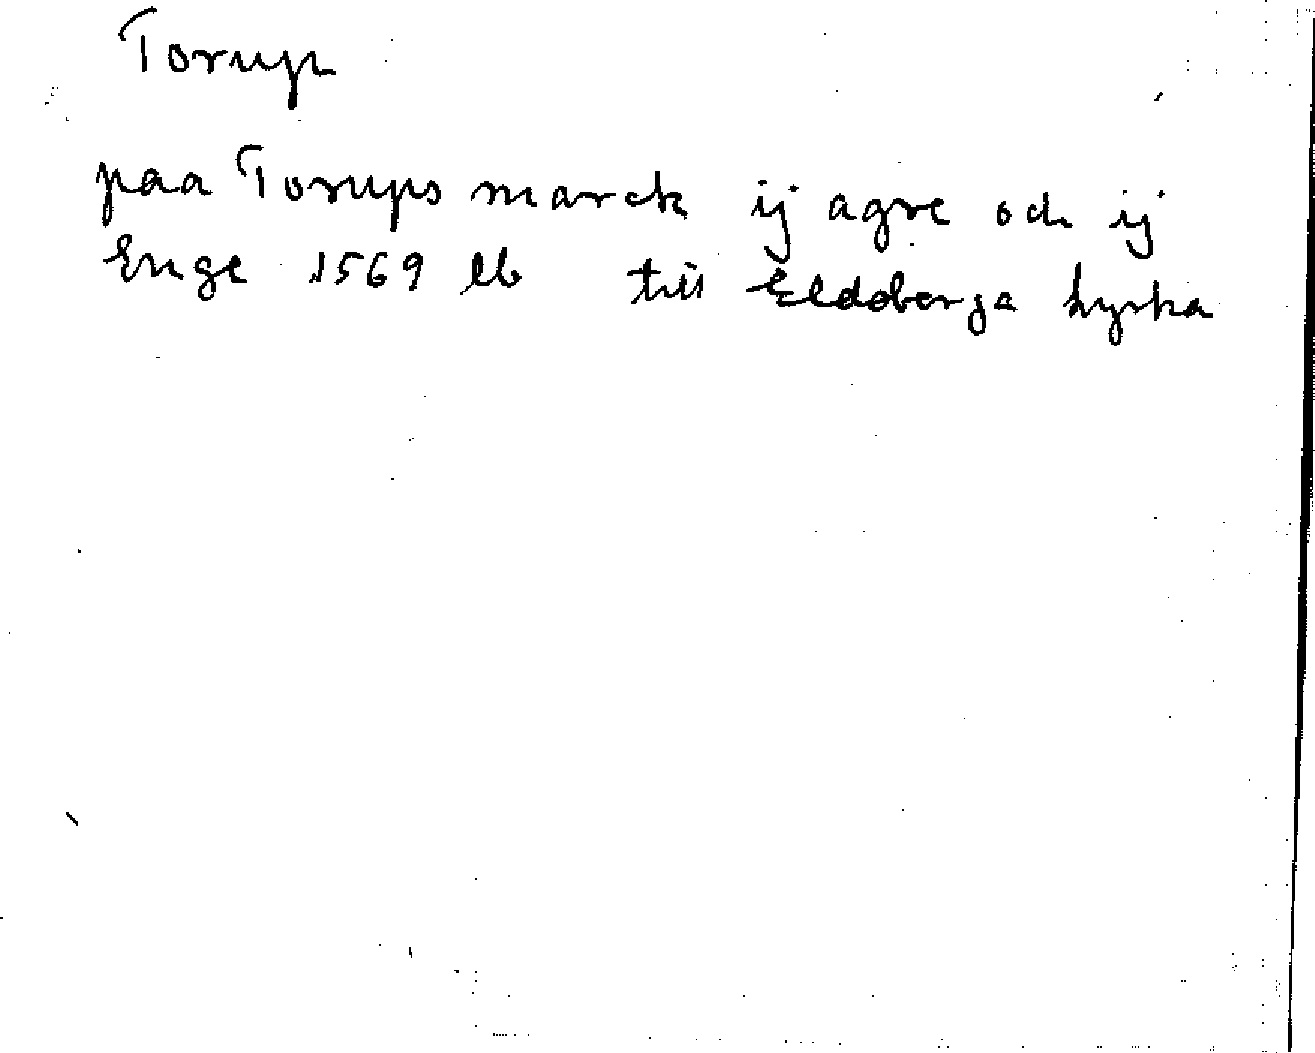 Torup
paa Torups marck ij agre och ij
Enge 1569 lb till Eldsberga kyrka